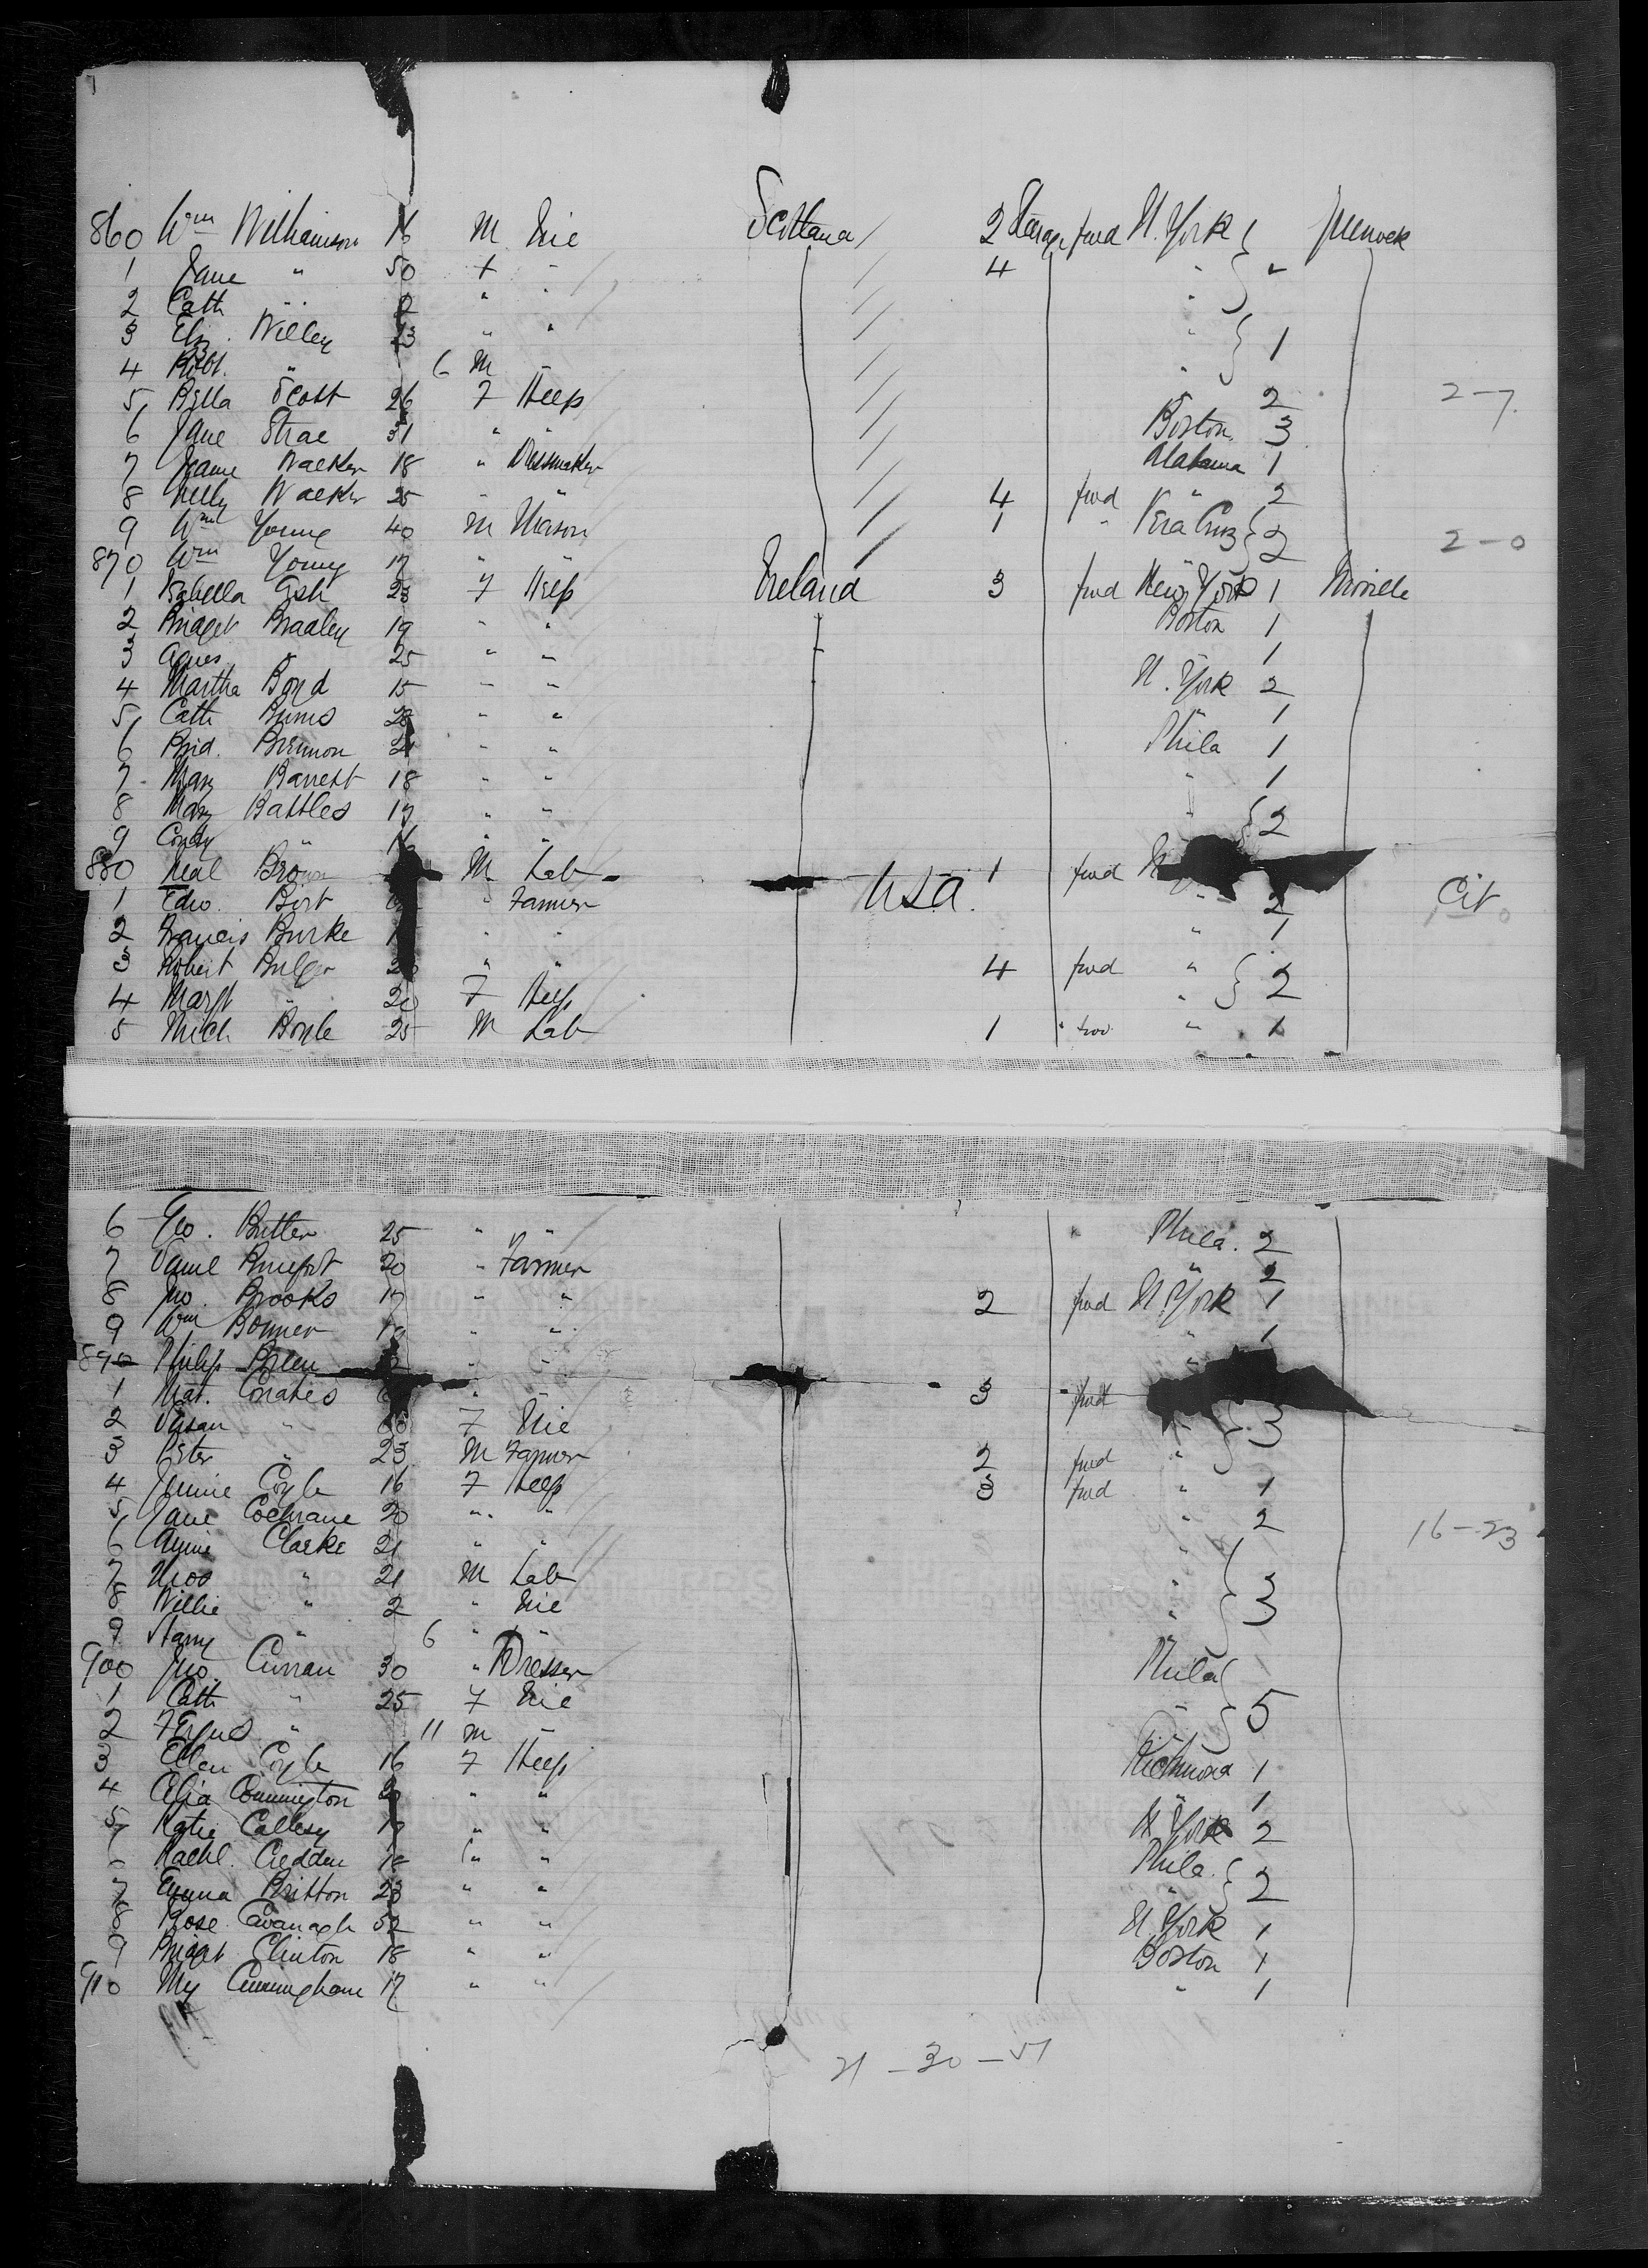 860 Wm Williamson 16 M Nie Scotland 2 Steerage fwd N. York Greenock
1 Jane " 50 f " 4 " "
2 Cath " " " "
3 Eliz. Willey 23 " " " 1
4 Robt. " 6 M " "
5 Bella Scott 26 F Help " 2 2-7
6 Jane Strae 31 " " Boston 3
7 Jeanie Walker 18 " Dressmaker Alabama 1
8 Nelly Walker 25 " " 4 fwd " 2
9 Wm Young 40 M Mason 1 " Vera Cruz 2
870 Wm Young 17 " " 2-0
1 Isabella Ash 23 F Help Ireland 3 fwd New York 1 Moville
2 Bridget Bradley 19 " " Boston 1
3 Agnes " 25 " " " 1
4 Martha Boyd 15 " " N. York 2
5 Cath Burns 28 " " " 1
6 Brid. Brennon 21 " " Phila 1
7 Mary Barrett 18 " " " 1
8 Mary Battles 19 " " " 2
9 " 16 " "
880 Neal Brown M Lab 1 fwd N
1 Edw. Bort " Farmer USA. " 2 Cit
2 Francis Burke " " " 1
3 Robert Bulger " " 4 fwd " 2
4 Margt " 20 F Help "
5 Mich Boyle 25 M Lab 1 " " 1
6 Geo. Butler 25 " " " Phila. 2
7 Daml 20 " Farmer " 2
8 Jno. Brooks 17 " " 2 fwd N. York 1
9 Wm Bonner 19 " " " 1
890 Philip Breen " " "
1 Nat. " " 3 fwd
2 Susan " 60 F Nie " 3
3 Peter " 23 M Farmer 2 fwd "
4 Jennie Coyle 16 F Help 3 fwd " 1
5 Jane Cochrane 20 " " " 2 16-23
6 Annie Clarke 21 " " "
7 Thos " 21 M Lab " 3
8 Willie " 2 " Nie "
9 Harry " 6 " " "
900 Jno. Curran 30 " Dresser Phila
1 Cath " 25 F Nie " 5
2 Fergus " 11 m " "
3 Ellen Coyle 16 F Help Richmond 1
4 Celia Connington " " " 1
5 Katie 19 " " N York 2
Rachl. Credden 18 " " Phila. 2
7 Emma Britton 23 " " "
8 Rose Cavanagh 52 " " N. York 1
9 Bridget Clinton 18 " " Boston 1
910 My Cunningham 17 " " " 1
21-30-51